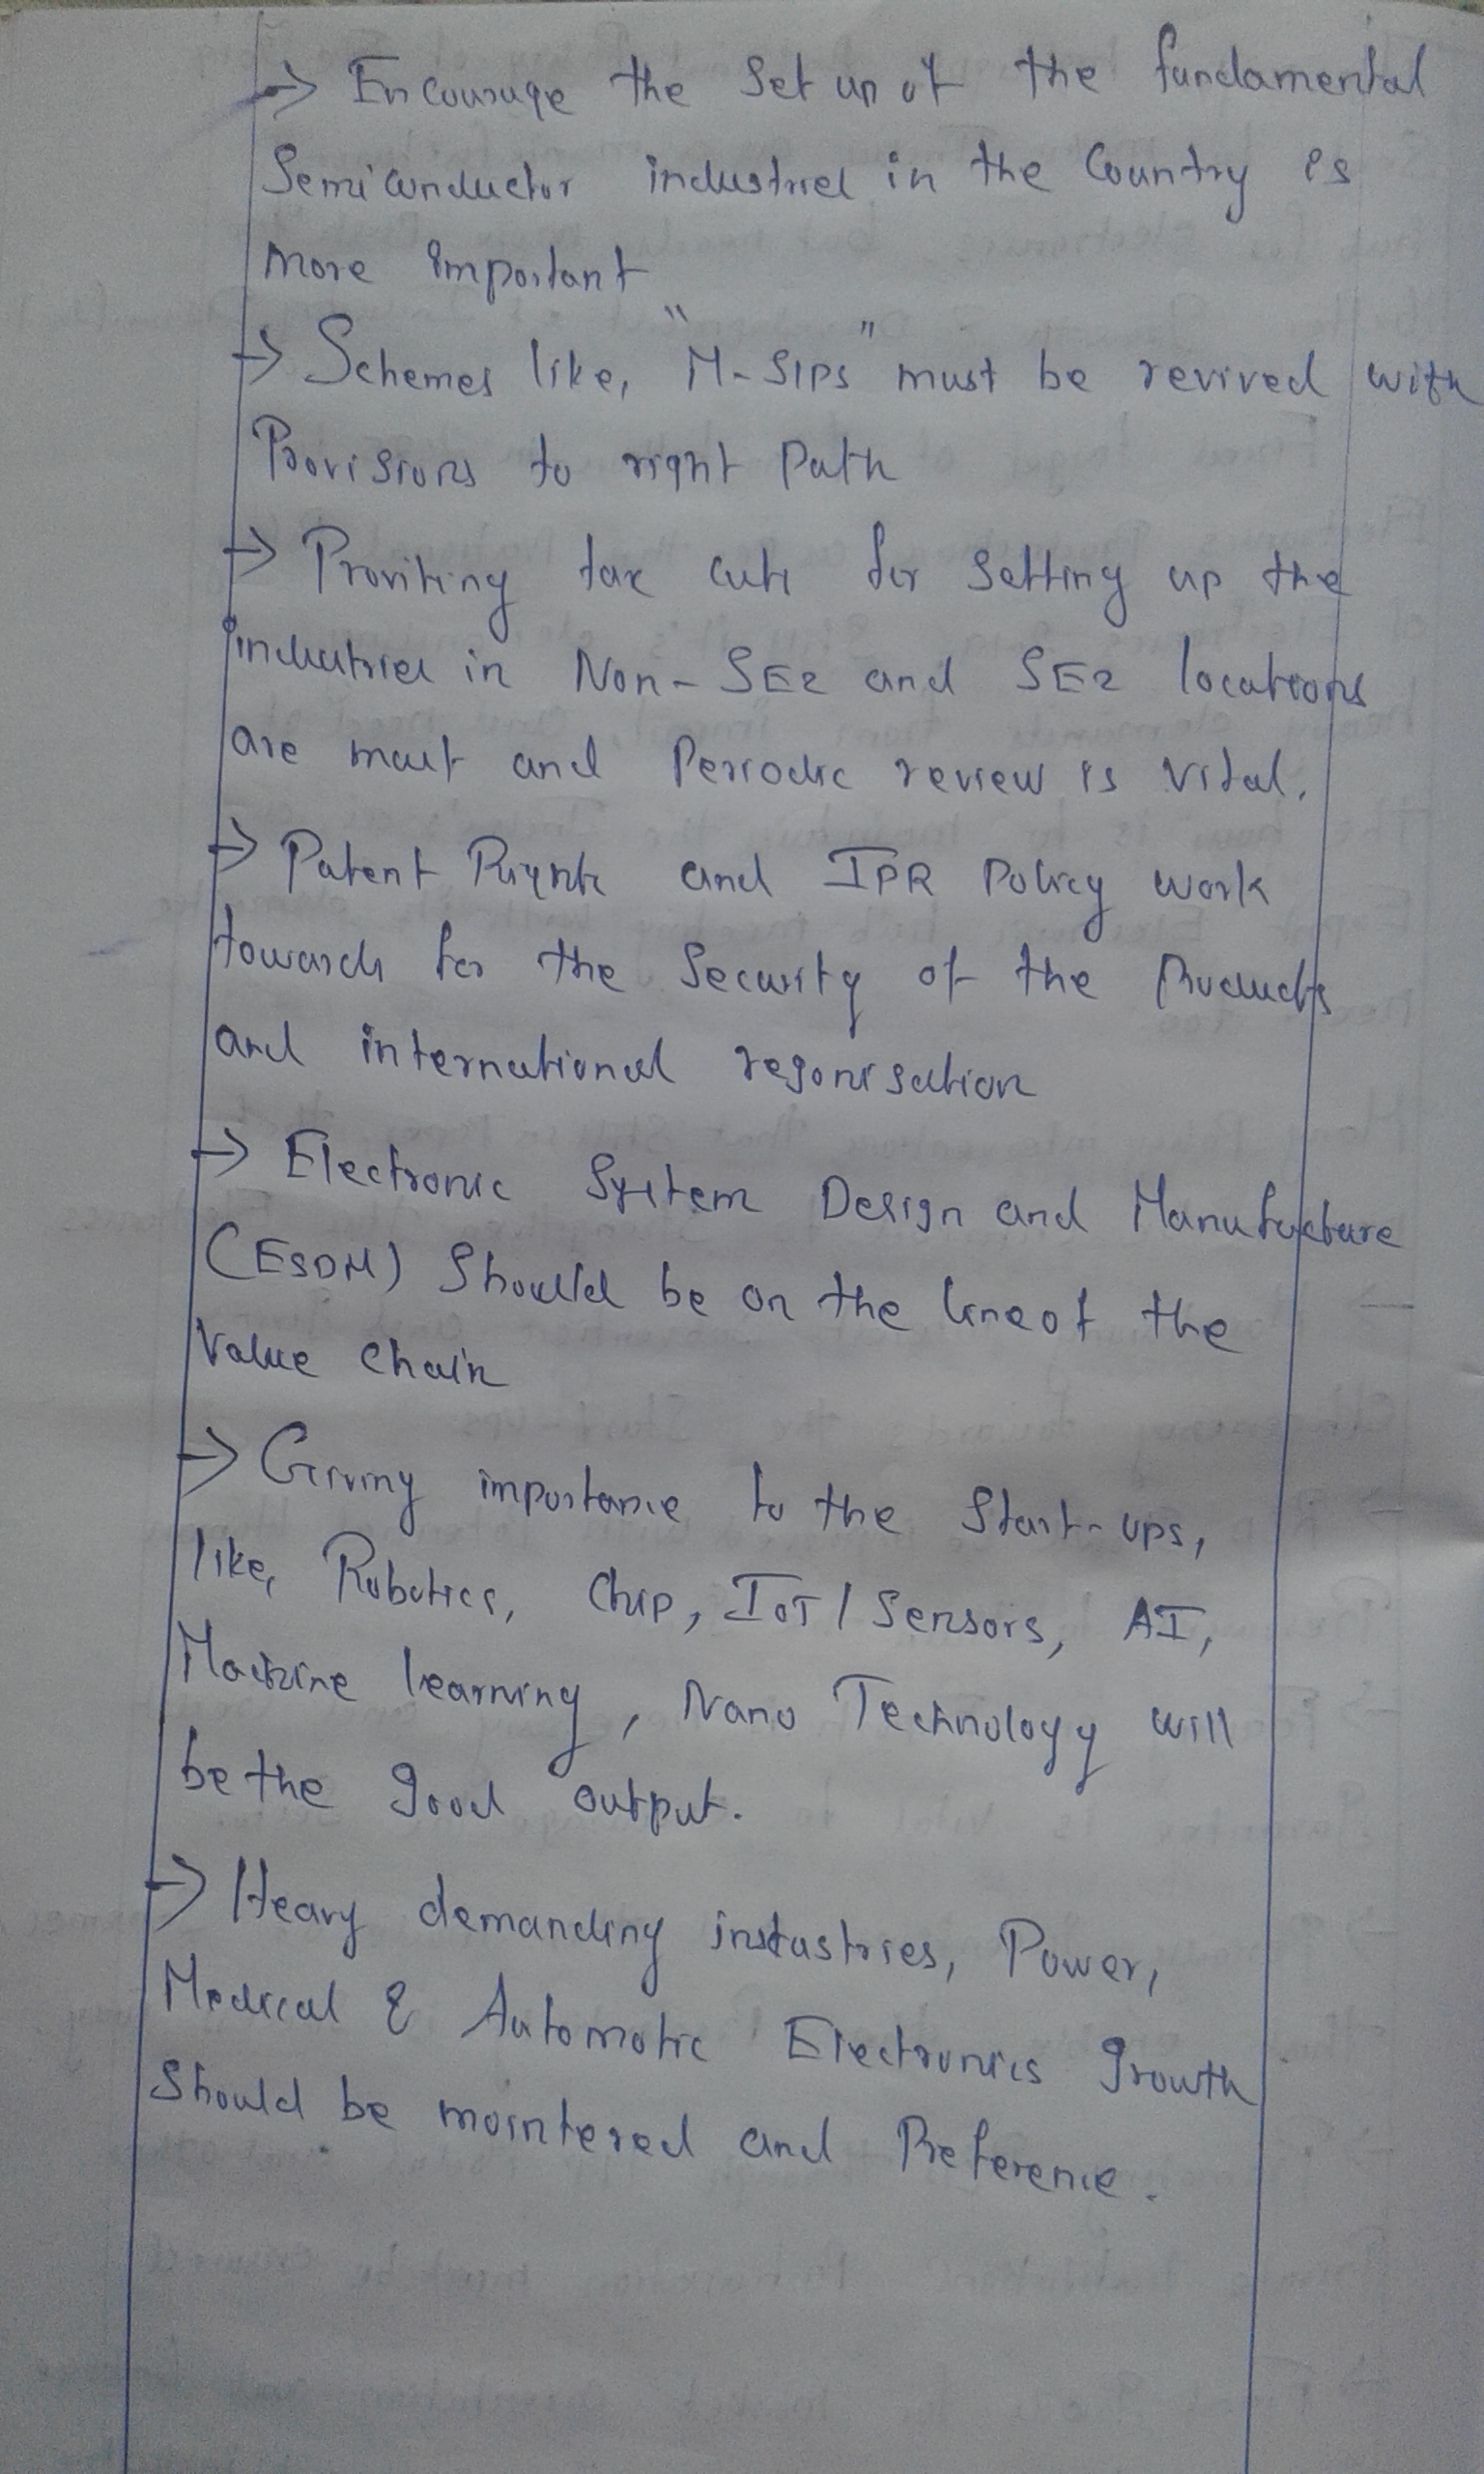 → Encourage the Set up of the fundamental
Semiconductor industries in the Country is
more important
→ Schemes like, "M-SIPS" must be revived with
Provisions to right Path
→ Providing tax cuts for Setting up the
industries in Non-SEZ and SEZ locations
are must and Periodic review is vital.
→ Patent Rights and IPR Policy work
towards for the Security of the Products
and international regonisation
→ Electronic System Design and Manufacture
(ESDM) Should be on the line of the
Value Chain
→ Giving importance to the Start-ups,
like, Robotics, Chip, IoT/Sensors, AI,
Machine learning, Nano Technology will
be the good output.
→ Heavy demanding industries, Power,
Medical & Automotic Electronics growth
Should be mointered and Preference.